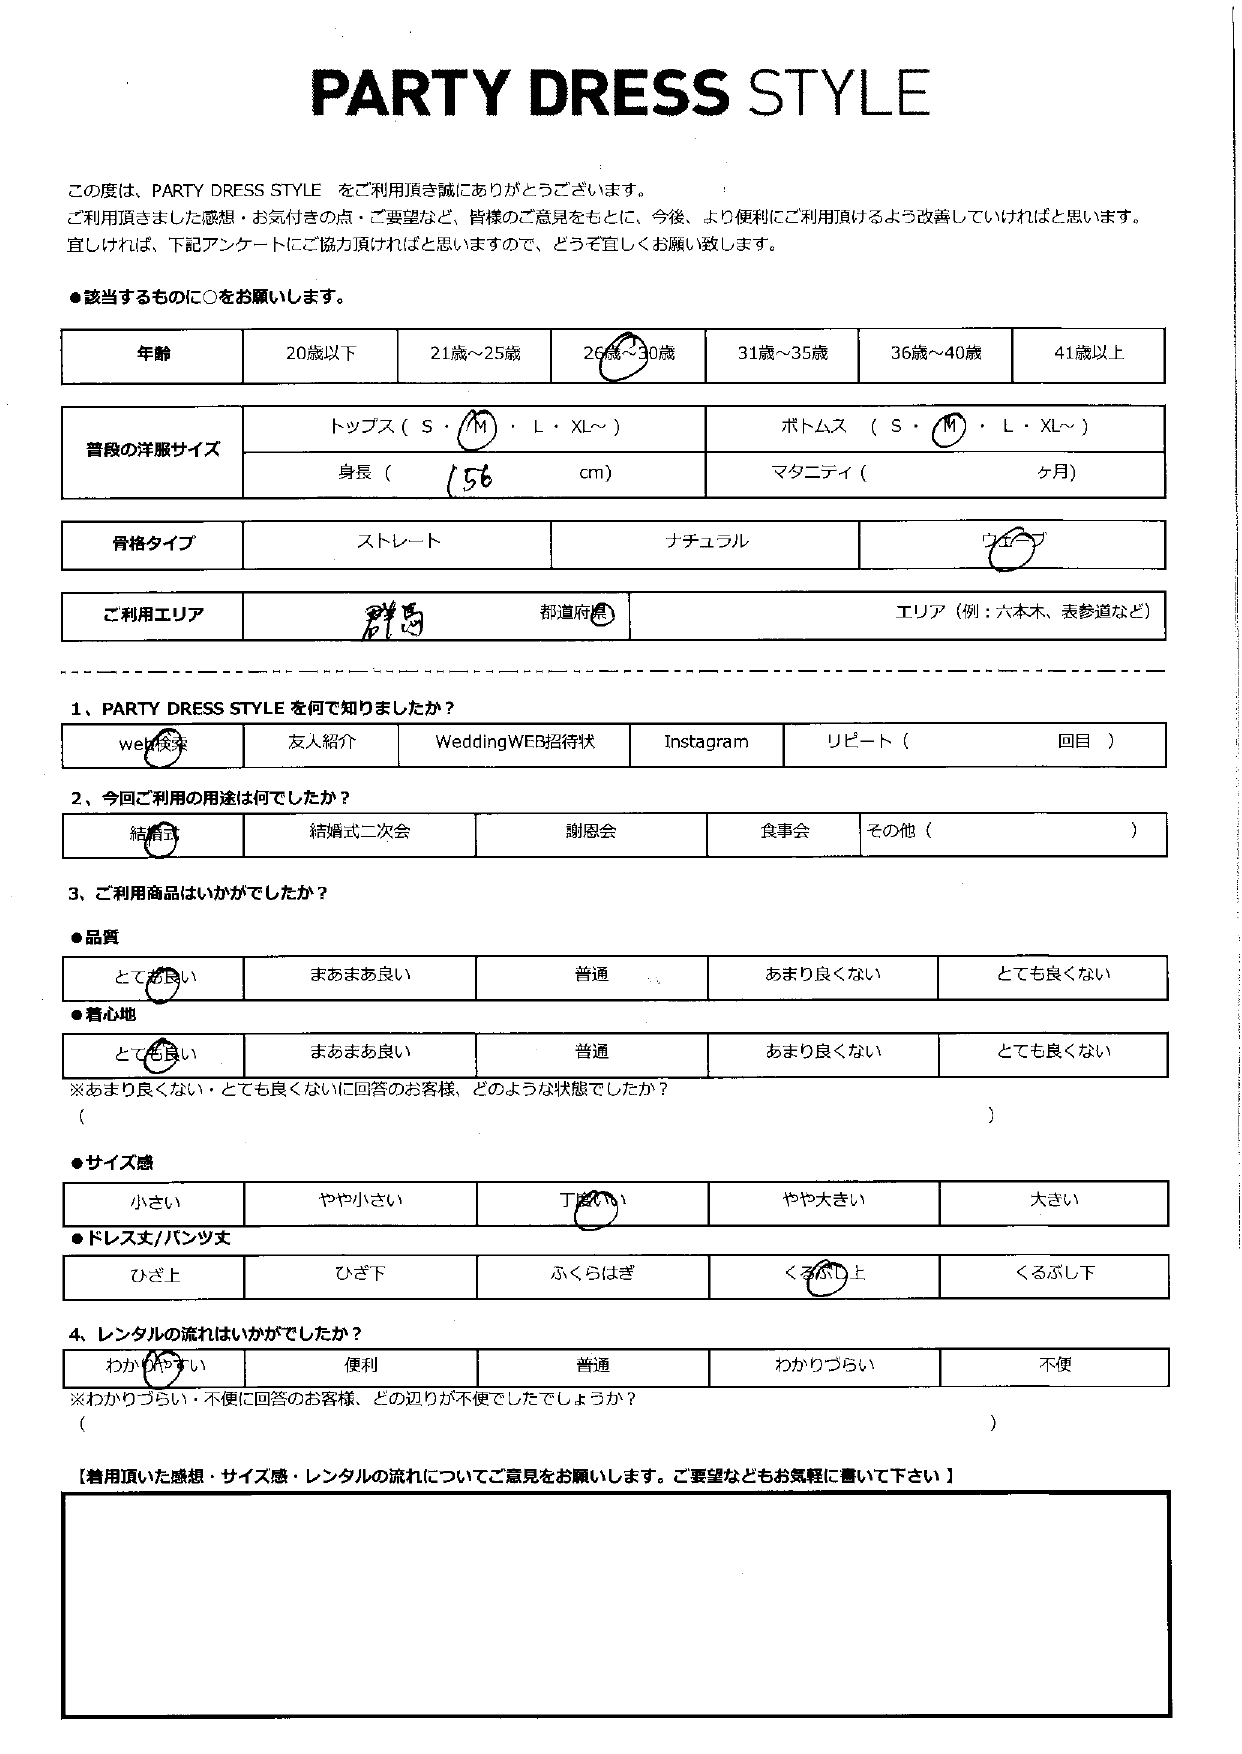 PARTY DRESS STYLE
この度は、PARTY DRESS STYLE をご利用頂き誠にありがとうございます。
ご利用頂きました感想・お気付きの点・ご要望など、皆様のご意見をもとに、今後、より便利にご利用頂けるよう改善していければと思います。
宜しければ、下記アンケートにご協力頂ければと思いますので、どうぞ宜しくお願い致します。
●該当するものに○をお願いします。
年齢 20歳以下 21歳～25歳 26歳～30歳 31歳～35歳 36歳～40歳 41歳以上
普段の洋服サイズ トップス ( S ・ M ・ L ・ XL～ ) ボトムス ( S ・ M ・ L ・ XL～ )
身長 ( 156 cm) マタニティ ( ヶ月)
骨格タイプ ストレート ナチュラル ウェーブ
ご利用エリア 群馬 都道府県 エリア（例：六本木、表参道など）
1、PARTY DRESS STYLE を何で知りましたか？
web検索 友人紹介 WeddingWEB招待状 Instagram リピート（ 回目 ）
2、今回ご利用の用途は何でしたか？
結婚式 結婚式二次会 謝恩会 食事会 その他（ ）
3、ご利用商品はいかがでしたか？
●品質
とても良い まあまあ良い 普通 あまり良くない とても良くない
●着心地
とても良い まあまあ良い 普通 あまり良くない とても良くない
※あまり良くない・とても良くないに回答のお客様、どのような状態でしたか？
（ ）
●サイズ感
小さい やや小さい 丁度いい やや大きい 大きい
●ドレス丈/パンツ丈
ひざ上 ひざ下 ふくらはぎ くるぶし上 くるぶし下
4、レンタルの流れはいかがでしたか？
わかりやすい 便利 普通 わかりづらい 不便
※わかりづらい・不便に回答のお客様、どの辺りが不便でしたでしょうか？
（ ）
【着用頂いた感想・サイズ感・レンタルの流れについてご意見をお願いします。ご要望などもお気軽に書いて下さい 】